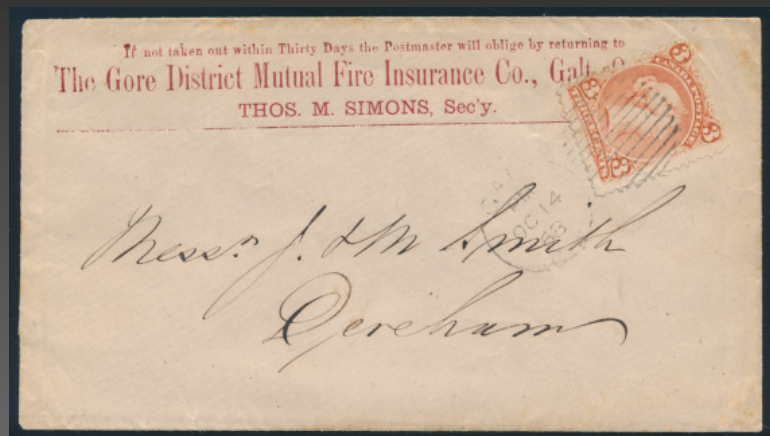 If not taken out within Thirty Days the Postmaster will oblige by returning to
The Gore District Mutual Fire Insurance Co., Galt, O
THOS. M. SIMONS, Sec'y.
3
3
3
3
CANADA POSTAGE
THREE CENTS
GAL
PM
OC 14
68
Messrs. J. & M Smith
Dereham